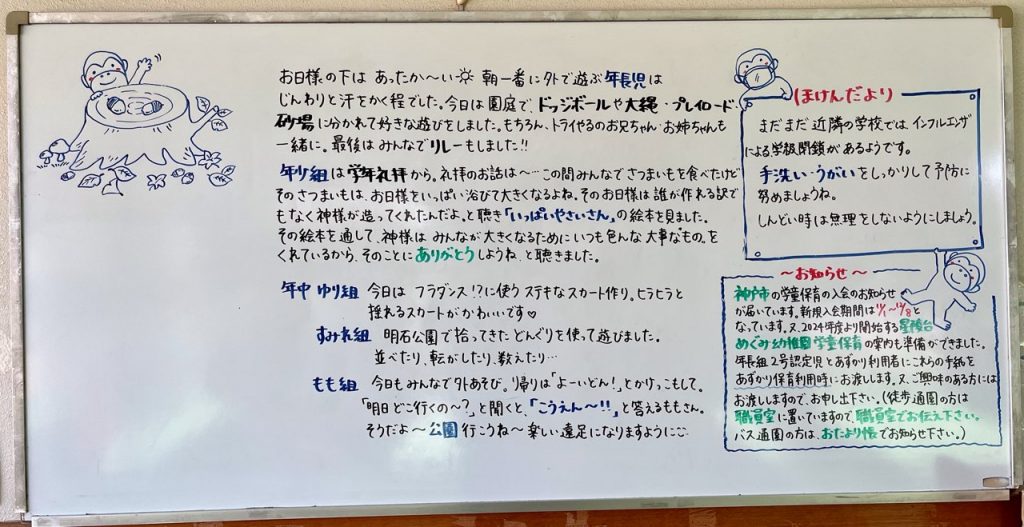 お日様の下は あったか〜い☀ 朝一番に外で遊ぶ年長児は
じんわりと汗をかく程でした。今日は園庭で、ドッジボールや大縄・プレイロード・
砂場に分かれて好きな遊びをしました。もちろん、トライやるのお兄ちゃん・お姉ちゃんも
一緒に。最後はみんなでリレーもしました!!
年少組は学年礼拝から。礼拝のお話は〜…この間みんなでさつまいもを食べたけど
そのさつまいもは、お日様をいっぱい浴びて大きくなるよね。そのお日様は誰が作れる訳で
もなく神様が造ってくれたんだよ。と聴き「いっぱいやさいさん」の絵本を見ました。
その絵本を通して、神様は みんなが大きくなるためにいつも色んな"大事なもの"を
くれているから、そのことにありがとうしようね、と聴きました。
年中 ゆり組 今日は フラダンス!?に使う ステキなスカート作り。ヒラヒラと
揺れるスカートがかわいいです♡
すみれ組 明石公園で拾ってきた どんぐりを使って遊びました。
並べたり、転がしたり、数えたり…
もも組 今日もみんなで外あそび。帰りは「よーいどん!」とかけっこもして。
「明日どこ行くの〜?」と聞くと、「こうえん〜!!」と答えるももさん。
そうだよ〜公園行こうね〜 楽しい遠足になりますように
ほけんだより
まだまだ 近隣の学校では、インフルエンザ
による学級閉鎖があるようです。
手洗い・うがいをしっかりして予防に
努めましょうね。
しんどい時は無理をしないようにしましょう。
〜お知らせ〜
神戸市の学童保育の入会のお知らせ
が届いています。新規入会期間は11/1〜12/8と
なっています。又、2024年度より開始する星陵台
めぐみ幼稚園学童保育の案内も準備ができました。
年長組2号認定児とあずかり利用者にこれらの手紙を
あずかり保育利用時にお渡しします。又、ご興味のある方には
お渡ししますので、お申し出下さい。(徒歩通園の方は
職員室に置いていますので、職員室でお伝え下さい。
バス通園の方は、おたより帳でお知らせ下さい。)